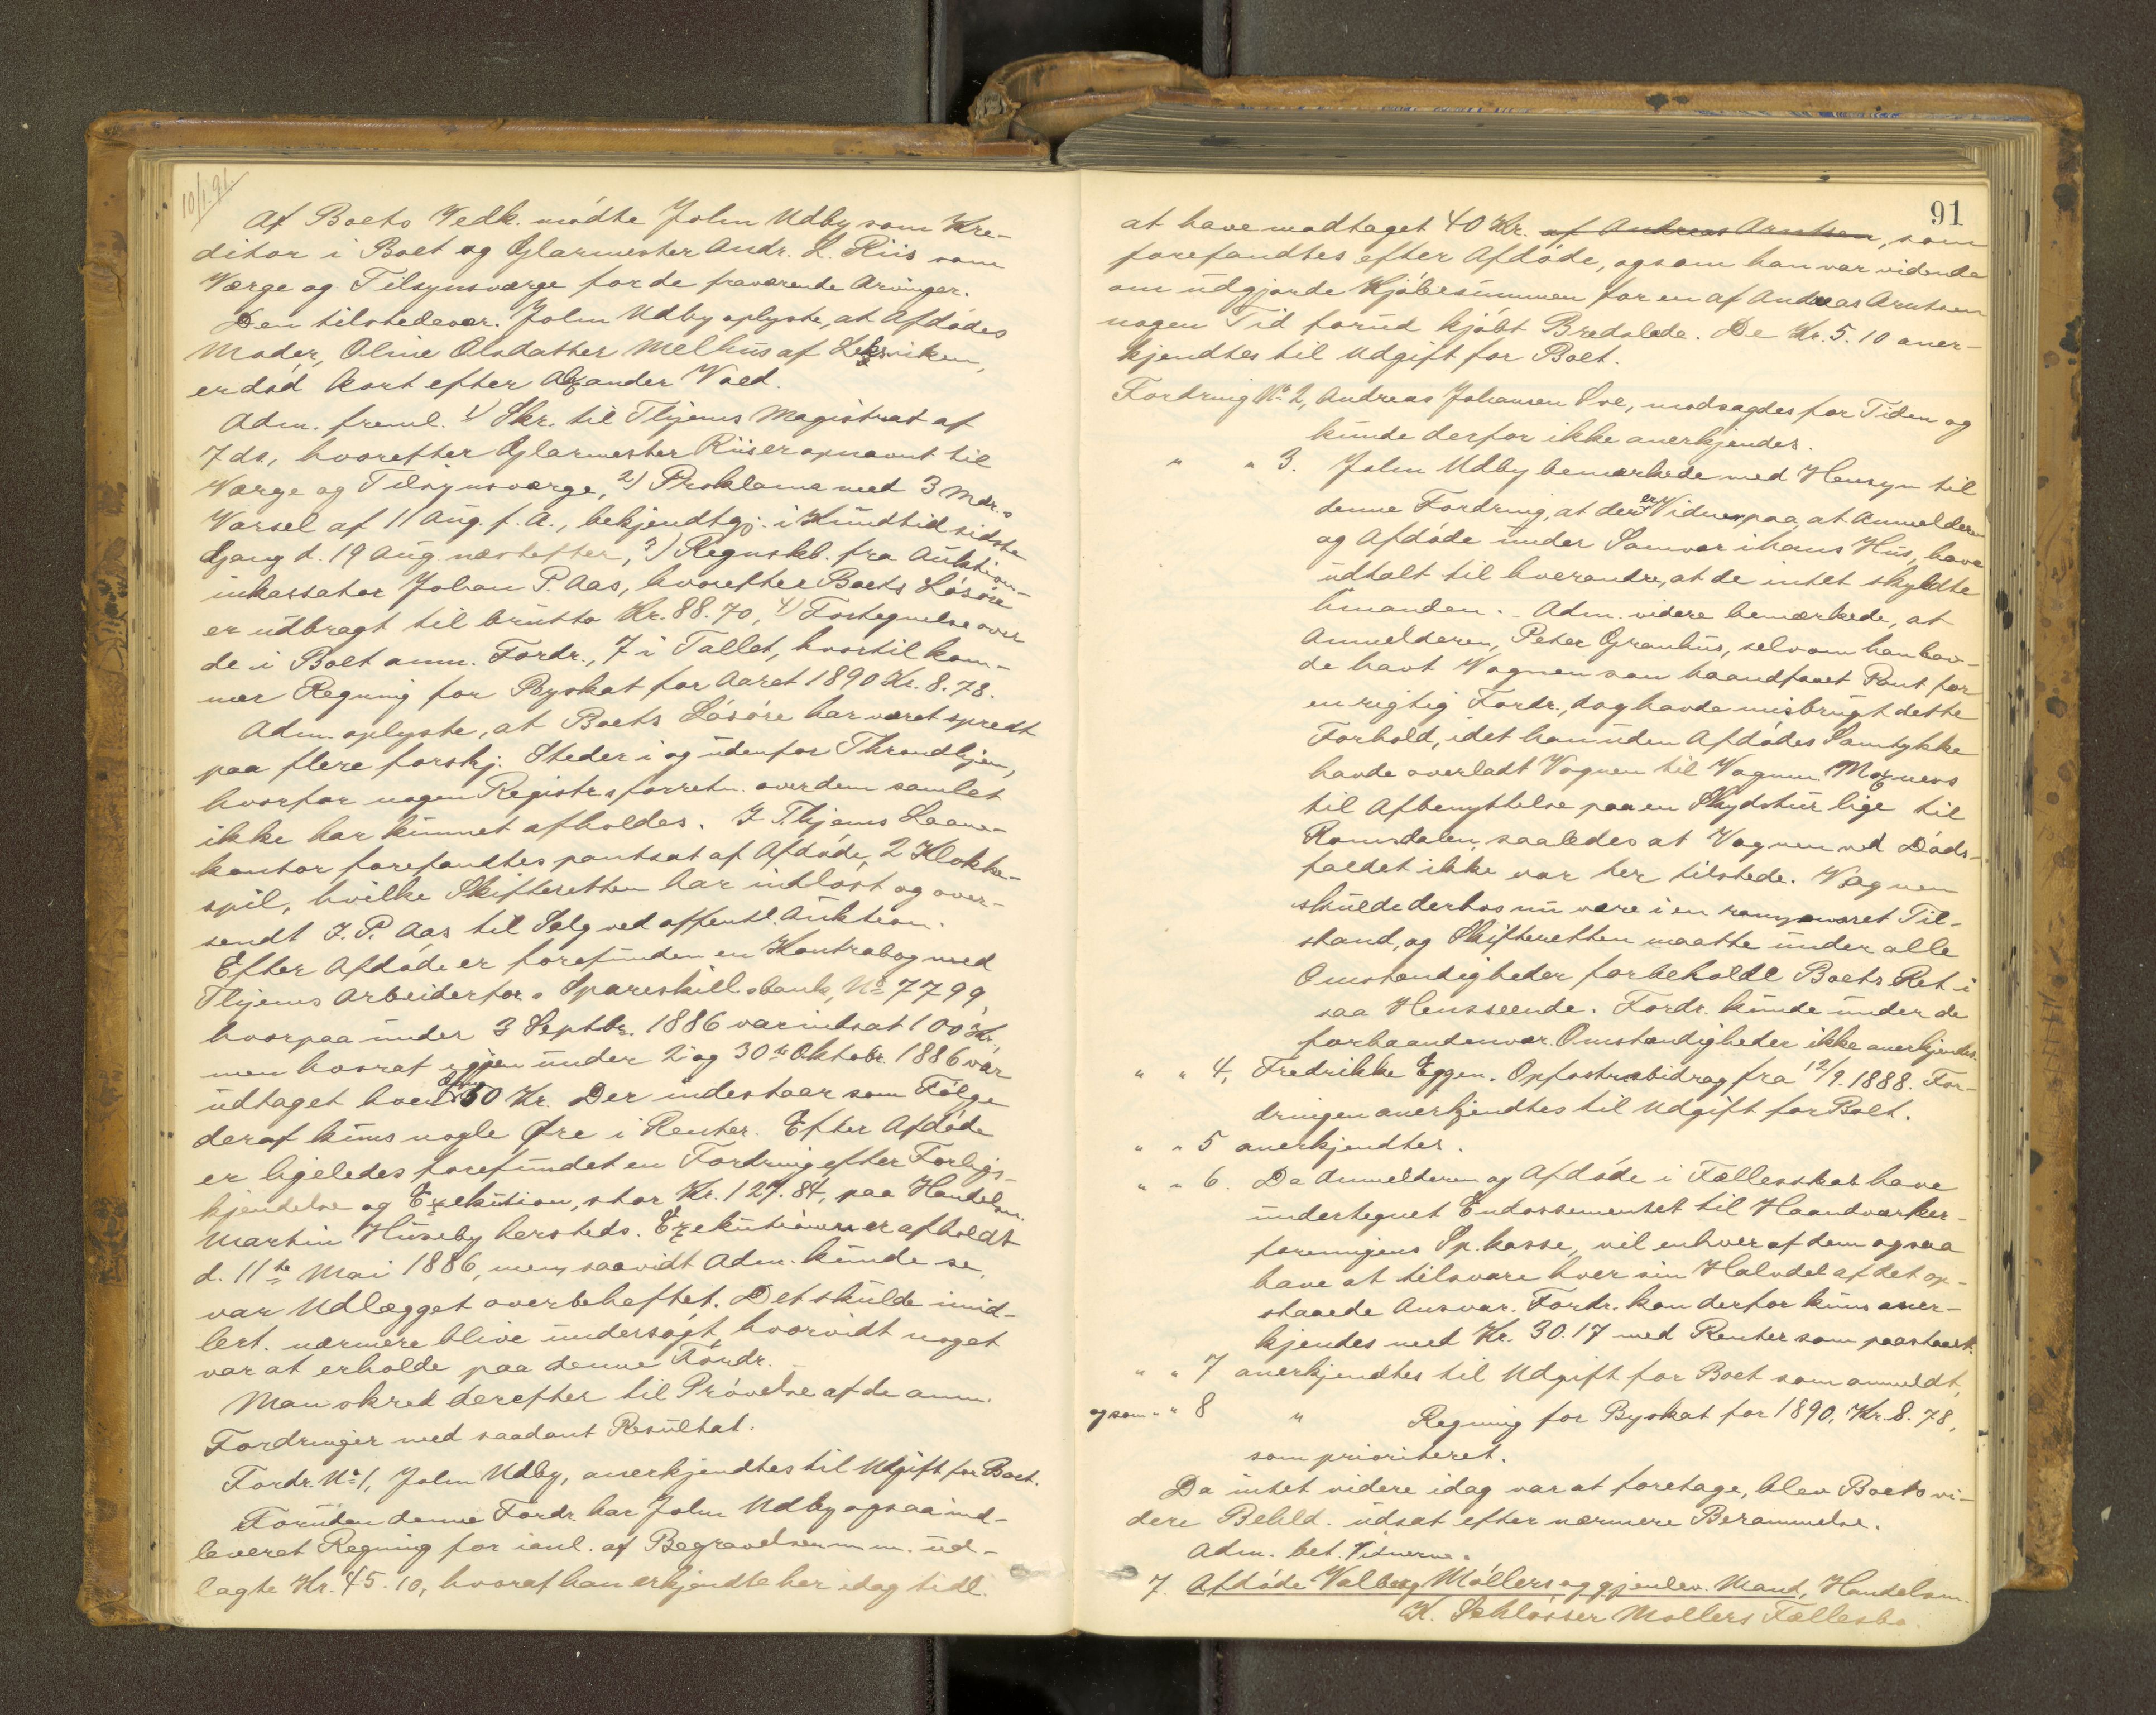 10/1.91.
Af Boets Vedk. mødte John Udby som Kre-
ditor i Boet og Glarmester Andr. L. Riis som
Værge og Tilsynsværge for de fraværende Arvinger.
Den tilstedevær. John Udby oplyste, at Afdødes
Moder, Oline Olsdatter Melhus af Leksviken,
er død kort efter Alexander Vold.
Adm. freml. 1) Skr. til Thjems Magistrat af
7 ds., hvorefter Glarmester Riis er opnævnt til
Værge og Tilsynsværge, 2) Proklama med 3 Mdr.s
Varsel af 11 Aug. f. A., bekjendtgj. i Kundtid sidste
Gang d. 19 Aug næstefter, 3) Regnskb. fra Auktions-
inkassator Johan P. Aas, hvorefter Boets Løsøre
er udbragt til brutto Kr. 88.70, 4) Fortegnelse over
de i Boet anm. Fordr., 7 i Tallet, hvortil kom-
mer Regning for Byskat for Aaret 1890 Kr. 8.78.
Adm oplyste, at Boets Løsøre har været spredt
paa flere forskj. Steder i og udenfor Throndhjem,
hvorfor nogen Registr.s forretn. over dem samlet
ikke har kunnet afholdes. I Thjems Laane-
kontor forefandtes pantsat af Afdøde 2 Klokke-
spil, hvilke Skifteretten har indløst og over-
sendt J. P. Aas til Salg ved offentl. Auktion.
Efter Afdøde er forefunden en Kontrabog med
Thjems Arbeiderfor.s Spareskill.sbank, No 7799,
hvorpaa under 3 Septbr. 1886 var indsat 100 Kr.,
men hvoraf igjen under 2 og 30te Oktobr. 1886 var
udtaget hver Gang 50 Kr. Der indestaar som Følge
deraf kuns nogle Øre i Renter. Efter Afdøde
er ligeledes forefundet en Fordring efter Forligs-
kjendelse og Exekution, stor Kr. 127.84, paa Handelsm.
Martin Huseby hersteds. Exekutionen er afholdt
d. 11te Mai 1886, men, saavidt Adm. kunde se,
var Udlægget overbeheftet. Det skulde imid-
lert. nærmere blive undersøgt, hvorvidt noget
var at erholde paa denne Fordr.
Man skred derefter til Prøvelse af de anm.
Fordringer med saadant Resultat.
Fordr. No 1, John Udby, anerkjendtes til Udgift for Boet.
Foruden denne Fordr. har John Udby ogsaa ind-
leveret Regning for ianl. af Begravelsen m. m. ud-
lagte Kr. 45.10, hvoraf han erkjendte her idag tidl.
91
at have modtaget 40 Kr. af Andreas Arntsen, som
forefandtes efter Afdøde, og som han var vidende
om udgjorde Kjøbesummen for en af Andreas Arntsen
nogen Tid forud kjøbt Bredslede. De Kr. 5.10 aner-
kjendtes til Udgift for Boet.
Fordring No 2, Andreas Johansen Sve, modsagdes for Tiden og
kunde derfor ikke anerkjendes.
" " 3. John Udby bemærkede med Hensyn til
denne Fordring, at der er Vidner paa, at Anmelderen
og Afdøde under Samvær i hans Hus, have
udtalt til hverandre, at de intet skyldte
hinanden. - Adm. videre bemærkede, at
Anmelderen, Peter Granhus, selv om han hav-
de havt Vognen som haandfaaet Pant for
en rigtig Fordr., dog havde misbrugt dette
Forhold, idet han uden Afdødes Samtykke
havde overladt Vognen til Vognm. Moxness
til Afbenyttelse paa en Skydstur lige til
Romsdalen, saaledes at Vognen ved Døds-
faldet ikke var her tilstede. Vognen
skulde derhos nu være i en ramponeret Til-
stand, og Skifteretten maatte under alle
Omstændigheder forbeholde Boets Ret i
saa Henseende. Fordr. kunde under de
forhaandenvær. Omstændigheder ikke anerkjendes.
" " 4, Fredrikke Eggen. Opfostr.sbidrag fra 12/9. 1888. For-
dringen anerkjendtes til Udgift for Boet.
" " 5 anerkjendtes.
" " 6. Da Anmelderen og Afdøde i Fællesskab have
undertegnet Endossementet til Haandværker-
foreningens Sp.kasse, vil enhver af dem ogsaa
have at tilsvare hver sin Halvdel af det op-
staaede Ansvar. Fordr. kan derfor kuns aner-
kjendes med Kr. 30.17 med Renter som paastaaet.
" " 7 anerkjendtes til Udgift for Boet som anmeldt,
og som " " 8 " Regning for Byskat for 1890, Kr. 8.78,
som prioriteret.
Da intet videre idag var at foretage, blev Boets vi-
dere Behld. udsat efter nærmere Berammelse.
Adm. bet. Vidnerne.
7. Afdøde Valborg Møllers og gjenlev. Mand, Handelsm.
K. Schlösser Møllers Fællesbo.